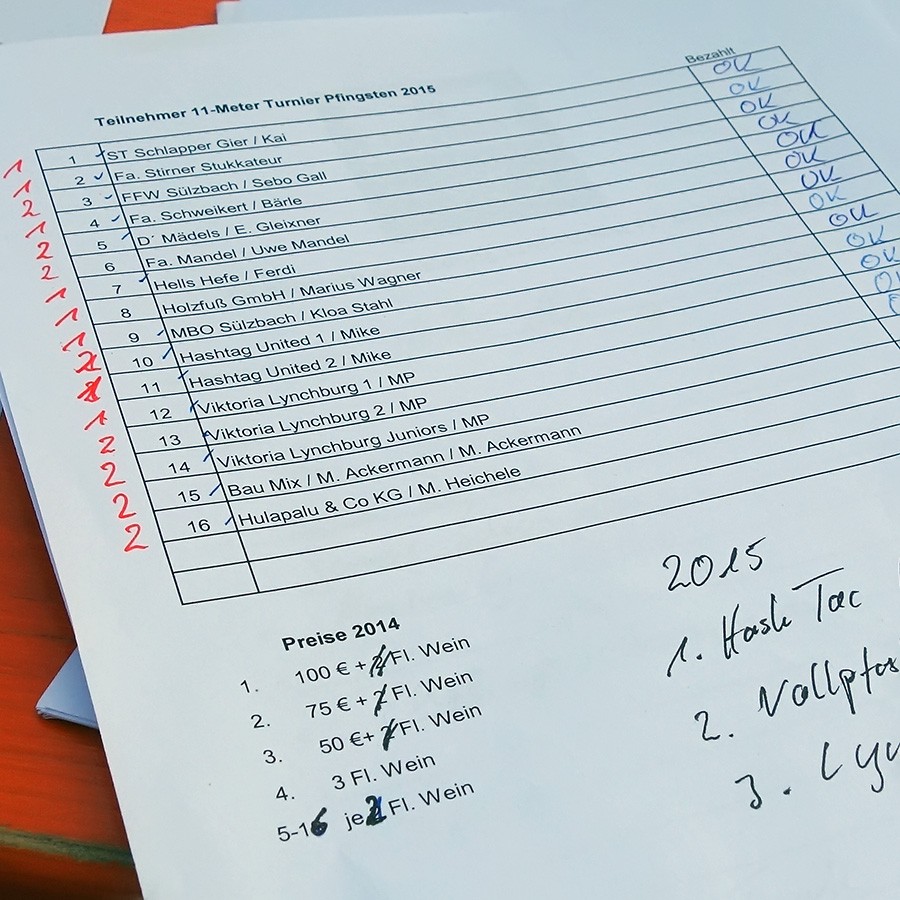 Bezahlt
Teilnehmer 11-Meter Turnier Pfingsten 2015
1 1 ST Schlapper Gier / Kai OK
1 2 Fa. Stirner Stukkateur OK
2 3 FFW Sülzbach / Sebo Gall OK
1 4 Fa. Schweikert / Bärle OK
2 5 D´ Mädels / E. Gleixner OK
2 6 Fa. Mandel / Uwe Mandel OK
1 7 Hells Hefe / Ferdi OK
1 8 Holzfuß GmbH / Marius Wagner OK
1 9 MBO Sülzbach / Kloa Stahl OK
10 Hashtag United 1 / Mike OK
11 Hashtag United 2 / Mike OK
1 12 Viktoria Lynchburg 1 / MP
2 13 Viktoria Lynchburg 2 / MP
2 14 Viktoria Lynchburg Juniors / MP
2 15 Bau Mix / M. Ackermann / M. Ackermann
2 16 Hulapalu & Co KG / M. Heichele
Preise 2014
1. 100 € + Fl. Wein
2. 75 € + Fl. Wein
3. 50 €+ Fl. Wein
4. 3 Fl. Wein
5-16 je 2 Fl. Wein
2015
1. Hash Tac
2.
3.